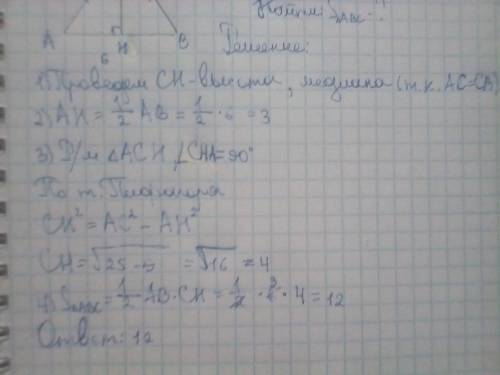 Найти: S_ABC - ?
A H B
6
Решение:
1) Проведем CH - высота, медиана (т.к. AC=CB)
2) AH = 1/2 AB = 1/2 · 6 = 3
3) Р/м △ACH, ∠CHA=90°
По т. Пифагора
CH² = AC² - AH²
CH = √25-9 = √16 = 4
4) S_ABC = 1/2 AB · CH = 1/2 · 6 · 4 = 12
Ответ: 12